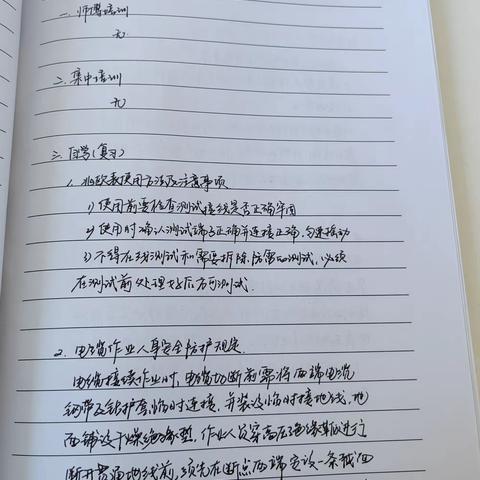 一、师傅培训
无
二、集中培训
无
三、自学(复习)
1、兆欧表使用方法及注意事项
1)使用前要检查测试接线是否正确牢固
2)使用时确认测试端子正确并连接正确,匀速摇动
3)不得在线测试和需要拆除防雷的测试,必须
在测试前处理好后方可测试.
2、电缆作业人身安全防护规定.
电缆接续作业时,电缆切断前需将两端电缆
钢带及铝护套临时连接,并装设临时接地线,地
面铺设干燥绝缘垫,作业人员穿高压绝缘靴进行
断开贯通地线前,须先在断点两端定设一条截面